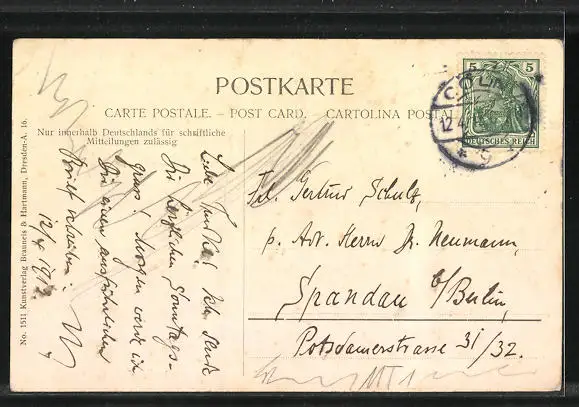 POSTKARTE
CARTE POSTALE. - POST CARD. - CARTOLINA POSTAL
Nur innerhalb Deutschlands für schriftliche
Mitteilungen zulässig
No. 1511 Kunstverlag Brauneis & Hartmann, Dresden-A. 16.
5 5
DEUTSCHES REICH
CÖLN
12.4
* 9
Frl. Gertrud Schulz,
p. Adr. Herrn Dr. Neumann,
Spandau b/Berlin,
Potsdamerstrasse 31/32.
Liebe Trude! Ich sende
Dir herzlichen Sonntags-
gruss! Morgen werde ich
Dir einen ausführlichen
Brief schreiben!
12/4